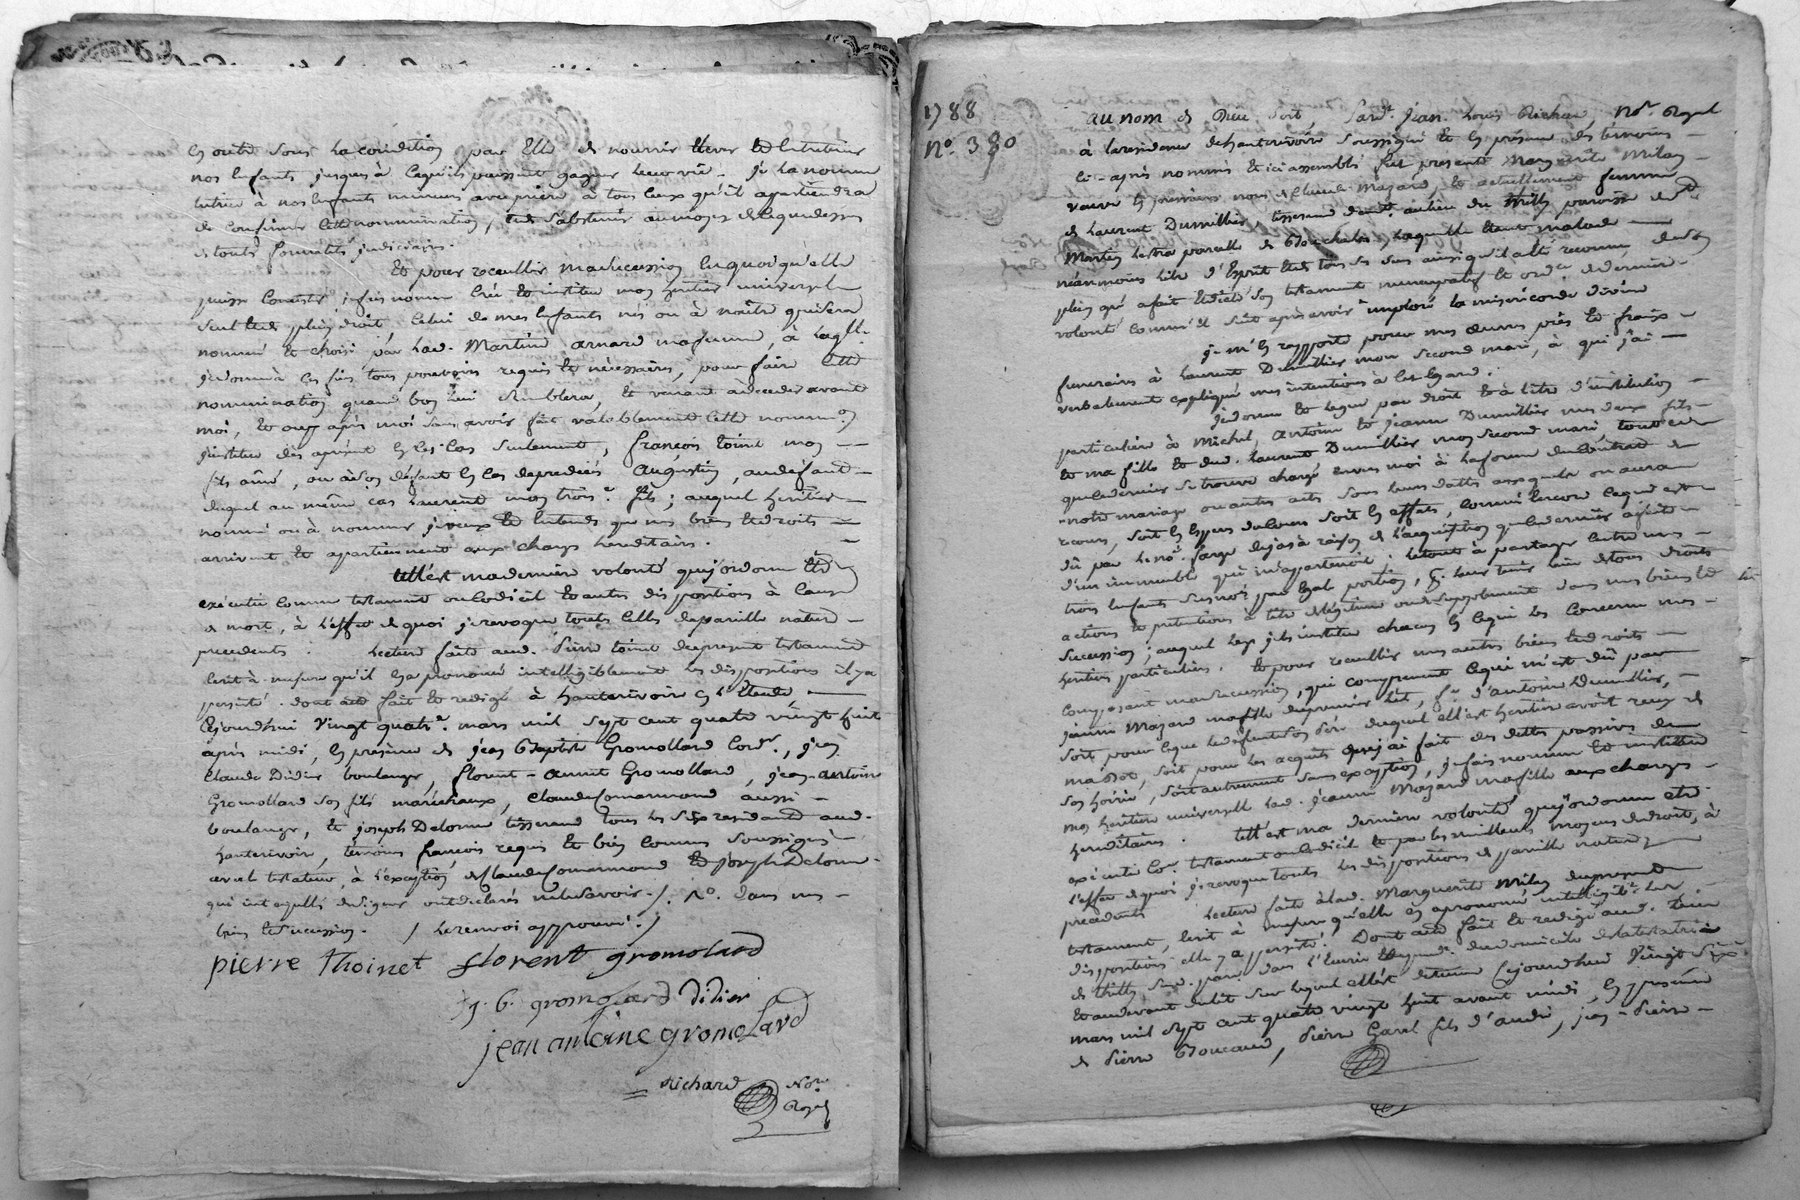 En outre sous la condition par Elle de nourrir Elever et Entretenir
nos Enfants jusqu'à cequ'ils puissent gagner leur vie. je la nomme
tutrice à nos Enfants mineurs avec prière à tous ceux qu'il appartiendra
de confirmer cette nomination, et de s'abstenir au moyen de
de toutes formalités judiciaires.
Et pour recueillir ma succession En quoi qu'elle
puisse consister je fais nomme crée et institue mon héritier universel
seul et de plein droit celui de mes Enfants nés ou à naître qui sera
nommé et choisi par lad. Martine arnard ma femme, à laqlle.
je donne à ces fins tous pouvoirs requis et nécessaires, pour faire cette
nomination quand bon lui semblera, et venant à deceder avant
moi, ou après moi sans avoir fait valablement cette nomm.on
j'institue dès aprésent En ce cas seulement, françois toinet mon
fils aîné, ou à son défaut En cas de predécés Augustin, au defaut
duquel au même cas Laurent mon trois.e fils; auquel heritier
nommé ou à nommer je veux et Entends que mes biens et droits
arrivent et apartiennent aux charges hereditaires.
telle est ma dernière volonté que j'ordonne Etre
exécutée comme testament ou codicil et autres dispositions à cause
de mort, à l'effet de quoi je revoque toutes celles de pareille nature
precedentes. Lecture faite aud. Pierre toinet du present testament
Ecrit à mesure qu'il En a prononcé intelligiblement les dispositions il y a
persisté. dont acte fait et redigé à hauterivoire En l'Etude
cejourd'hui Vingt quatre. mars mil sept cent quatre vingt huit
après midi, En présence de jean Baptiste Gromollard Cord.r, jean
Claude Didier boulanger, florent-annet Gromollard, jean antoine
Gromollard ses fils maréchaux, Claude Comarmond aussi
boulanger, et joseph Delorme tisserand tous les six residants aud.
hauterivoire, témoins françois requis et bien connus soussignés
avec le testateur, à l'exception de Claude Comarmond et joseph Delorme
qui interpellés de signer ont déclarés ne le savoir./. N.o dans mes
biens et succession. / Le renvoi approuvé./
pierre thoinet florent gromolard
j. b. gromolard didier
jean antoine gromolard
Richard Nore
Royal
1788
N.o 380
Au nom de Dieu soit, Pard.t jean Louis Richard, No.re Royal
à la residence de hauterivoire soussigné et En présence des témoins
ci-après nommés et ici assemblés fut presente Marguerite Milan
veuve En premieres noces de Claude Mazard, et actuellement femme
de Laurent Dumillier, tisserand demt. au lieu de thilly paroisse de St
Martin Lestra parcelle de Bouchala, laquelle Etant malade
néanmoins libre d'Esprit et de tous ses sens ainsi qu'il a été reconnu, de son
plein gré a fait et dicté son testament nuncupatif et ord.ce de derniere
volonté comm'il suit après avoir imploré la misericorde divine
je m'En rapporte pour mes œuvres pies et fraix
funeraires à Laurent Dumillier mon second mari, à qui j'ai
verbalement expliqué mes intentions à cet Egard.
je donne et legue par droit et à titre d'institution
particulière à Michel, Antoine et jeanne Dumillier mes deux fils
et ma fille et dud. Laurent Dumillier mon second mari tout ce
que ce dernier se trouve chargé envers moi à la forme du Contrat de
notre mariage ou autres acts sous leurs dattes auxquels on aura
recours, soit En Especes de cours soit En effets, comme Encore ce qui est
dû par à raison de l'acquisition que ce dernier a faite
d'un immeuble qui m'appartenoit. letout à partager Entre mes
trois Enfants susnom.s par Egal portion, p.r leur tenir lieu de tous droits
actions et prétentions à titre de légitime ou de suplément dans mes biens et
succession; auquel legs je les institue chacun En ce qui les concerne mes
heritiers particuliers. Et pour recueillir mes autres biens et droits
composant ma succession, qui comprennent ce qui m'est dû par
jeanne Mazard ma fille du premier Lit, f.e d'antoine Dumillier,
soit pour ce que le deffunt son père duquel ell'est heritiere avoit reçu de
ma Dot, soit pour les acquits que j'ai fait des dettes passives de
son hoirie, soit autrement sans exception, je fais nomme et institue
mon heritiere universelle lad. jeanne Mazard ma fille aux charges
hereditaires. telle est ma derniere volonté que j'ordonne etre
exécutée co.e testament ou codicil et par les meilleurs moyens de droit, à
l'effet de quoi je revoque toutes les dispositions de pareille nature
precedentes Lecture faite à lad. Marguerite Milan du present
testament, Ecrit à mesure qu'elle En a prononcé intelligib.t les
dispositions elle y a persisté. Dont acte fait et redigé aud. Lieu
de thilly sud. par.e dans l' du domicile de la testatrice
et au devant du lit sur lequel ell'est detenue Cejourd'hui Vingt six
mars mil sept cent quatre vingt huit avant midi, En presence
de Pierre Boucaud, Pierre Garel fils d'andré, jean-Pierre